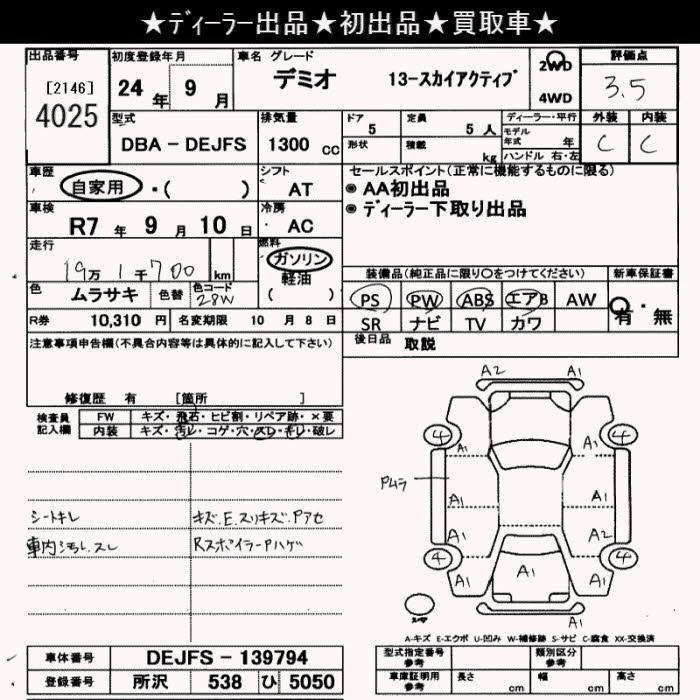 ★ディーラー出品★初出品★買取車★
出品番号 初度登録年月 車名 グレード 評価点
[2146] 24 年 9 月 デミオ 13-スカイアクティブ 2WD 3.5
4025 4WD
型式 排気量 ドア 定員 ディーラー・平行 外装 内装
DBA - DEJFS 1300 cc 5 5 人 モデル年式 年 C C
形状 積載 kg ハンドル 右・左
車歴 シフト セールスポイント(正常に機能するものに限る)
自家用 ・( ) AT ◉ AA初出品
車検 冷房 ◉ ディーラー下取り出品
R7 年 9 月 10 日 AC
走行 燃料
19万 1千700 km ガソリン 装備品(純正品に限り〇をつけてください) 新車保証書
軽油
色 ムラサキ 色替 色コード 28W ( ) PS PW ABS エアB AW 有・無
R券 10,310 円 名変期限 10 月 8 日 SR ナビ TV カワ
注意事項申告欄(不具合内容等は具体的に記入して下さい) 後日品 取説
修復歴 有 [箇所 ]
検査員記入欄 FW キズ・飛石・ヒビ割・リペア跡・×要
内装 キズ・汚レ・コゲ・穴・スレ・キレ・破レ
シートキレ キズ.E.スリキズ.Pアセ
車内汚レ.スレ RスポイラーPハゲ
A2 A1
4 A1 A1 4
Pムラ A1 A1
A1 A2
4 A1 A1 A1 4
A1
A-キズ E-エクボ U-凹み W-補修跡 S-サビ C-腐食 XX-交換済
車体番号 DEJFS - 139794 型式指定番号 参考 類別区分 参考
登録番号 所沢 538 ひ 5050 車庫証明用 参考 長さ cm 幅 cm 高さ cm